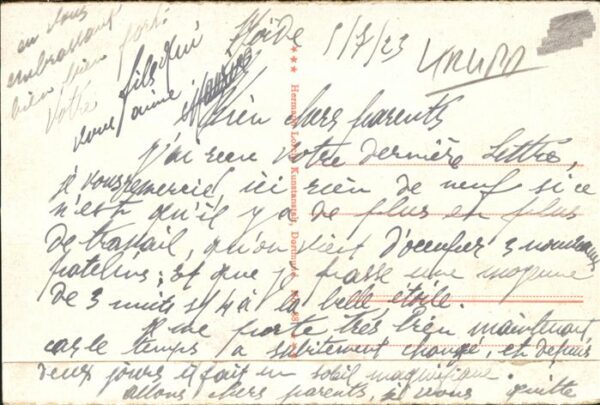 5/7/23
Bien chers parents
J'ai reçu votre dernière lettre,
je vous remercie, ici rien de neuf si ce
n'est qu'il y a de plus en plus
de travail, qu'on vient d'occuper 3 nouveaux
patelins; et que je passe une moyenne
de 3 nuits s/4 à la belle étoile.
Je me porte très bien maintenant
car le temps a subitement changé, et depuis
deux jours il fait un soleil magnifique.
allons chers parents, je vous quitte
en vous
embrassant
bien bien fort
Votre
fils qui
vous aime
Herman Kunstanstalt, Dortmund